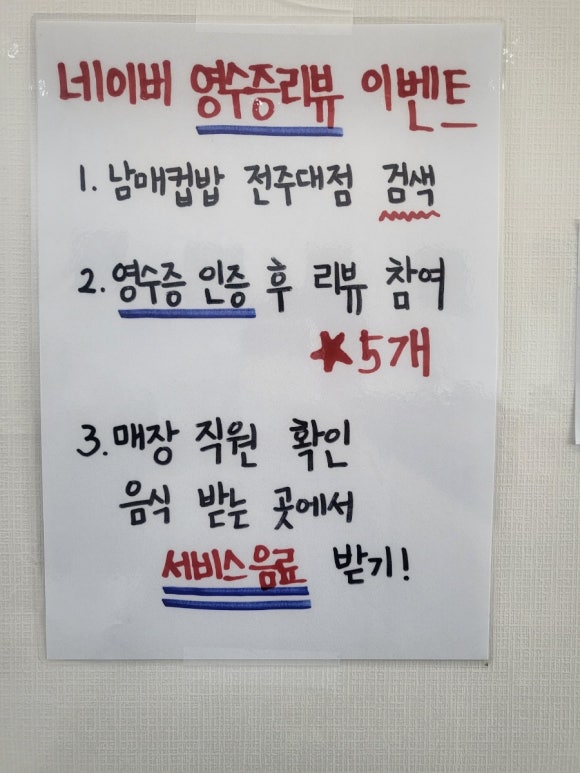 네이버 영수증리뷰 이벤트
1. 남매컵밥 전주대점 검색
2. 영수증 인증 후 리뷰 참여
★5개
3. 매장 직원 확인
음식 받는 곳에서
서비스음료 받기!